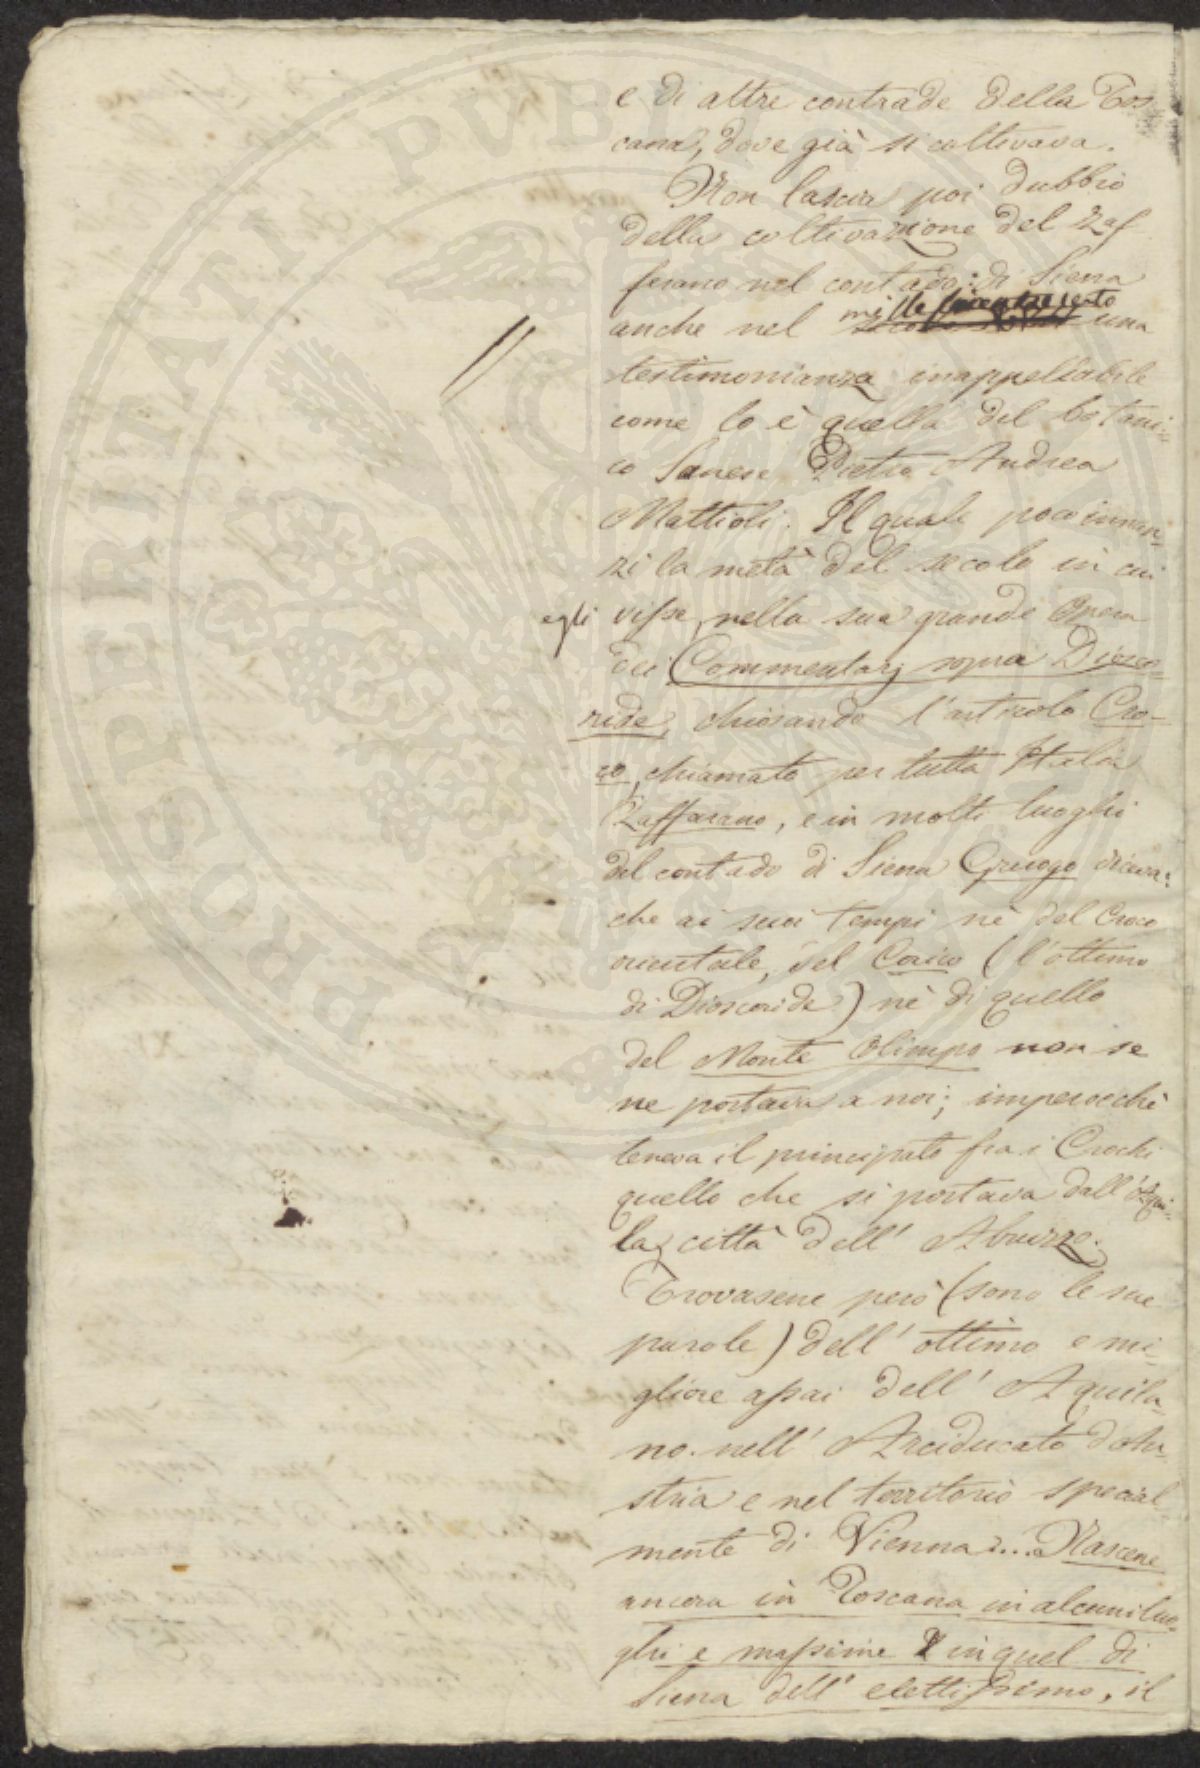 e di altre contrade della Tos
cana, dove già si coltivava.
Non lascia poi dubbio
della coltivazione del Zaf
ferano nel contado di Siena
anche nel mille una
testimonianza inappellabile
come lo è quella del botani-
co Sanese Pietro Andrea
Mattioli. Il quale poco innan-
zi la metà del secolo in cui
egli visse, nella sua grande Opera
dei Commentarj sopra Diosco-
ride, chiosando l'articolo Cro-
co, chiamato per tutta Italia
Zaffarano, e in molti luoghi
del contado di Siena Gruogo diceva:
che ai suoi tempi nè del Croco
orientale, del Corico (l'ottimo
di Dioscoride) nè di quello
del Monte Olimpo non se
ne portava a noi; imperocchè
teneva il principato fra i Crochi
quello che si portava dall'Aqui-
la, città dell' Abruzzo.
Trovasene però (sono le sue
parole) dell' ottimo e mi-
gliore assai dell' Aquila-
no nell' Arciducato d'Au-
stria e nel territorio special
mente di Vienna.... Nascene
ancora in Toscana in alcuni luo-
ghi e massime in quel di
Siena dell' elettissimo, il
PROSPERITATI PVBLICAE